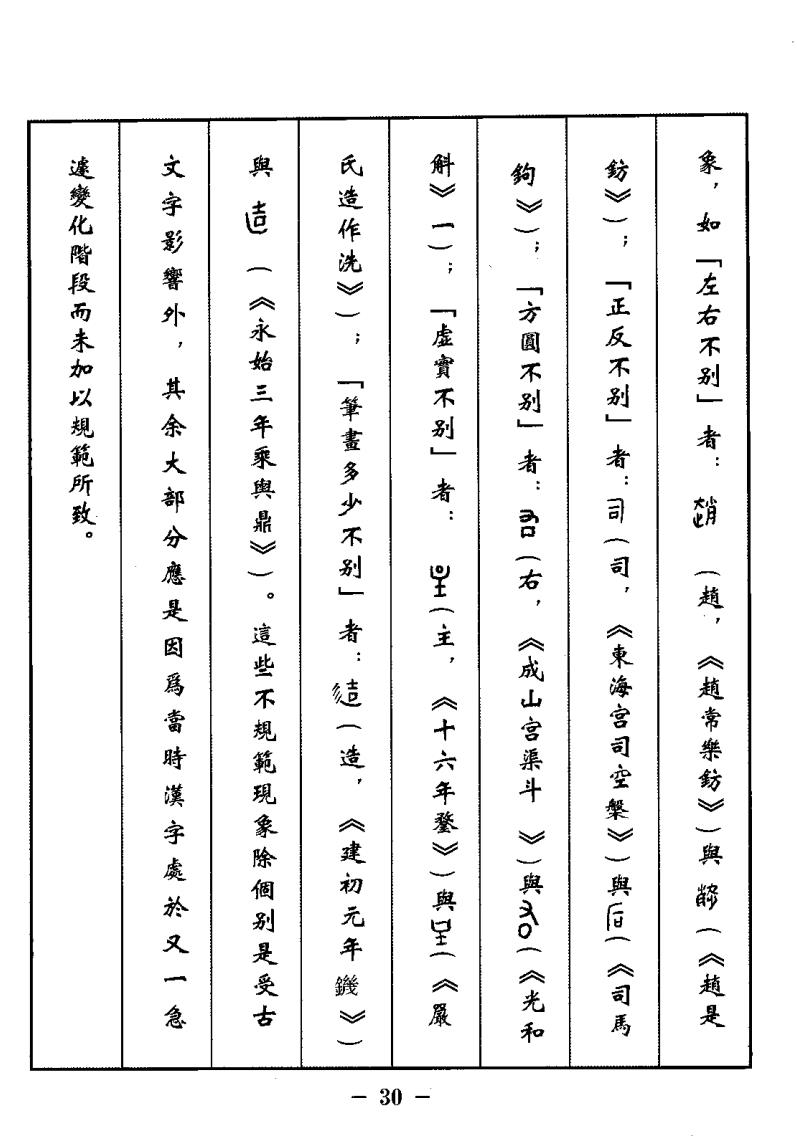 象，如「左右不别」者：（趙，《趙常樂鈁》）與（《趙是
鈁》）；「正反不别」者：（司，《東海宮司空槃》）與（《司馬
鉤》）；「方圓不别」者：（右，《成山宮渠斗》）與（《光和
斛》一）；「虛實不别」者：（主，《十六年鍪》）與（《嚴
氏造作洗》）；「筆畫多少不别」者：（造，《建初元年鐖》）
與（《永始三年乘輿鼎》）。這些不規範現象除個别是受古
文字影響外，其余大部分應是因爲當時漢字處於又一急
遽變化階段而未加以規範所致。
− 30 −